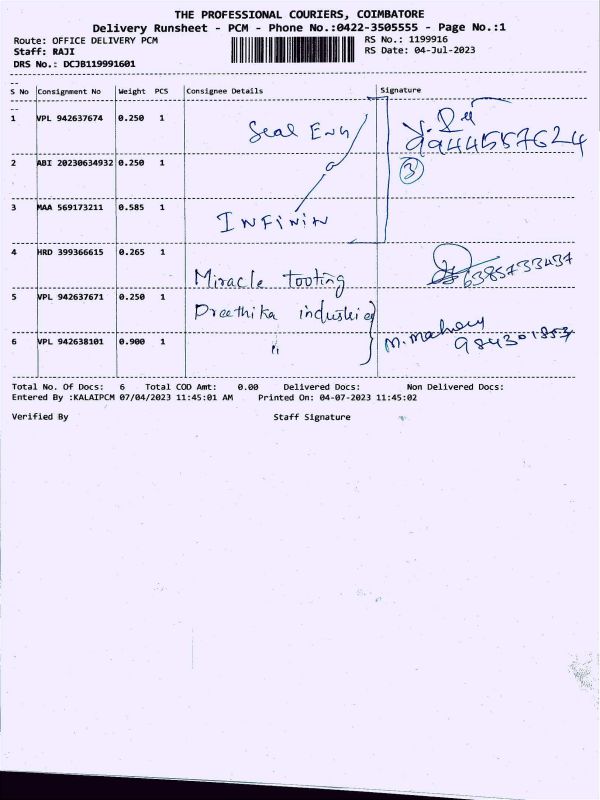 THE PROFESSIONAL COURIERS, COIMBATORE
Delivery Runsheet - PCM - Phone No.:0422-3505555 - Page No.:1
Route: OFFICE DELIVERY PCM RS No.: 1199916
Staff: RAJI RS Date: 04-Jul-2023
DRS No.: DCJB119991601
S No Consignment No Weight PCS Consignee Details Signature
1 VPL 942637674 0.250 1 Seal Enn
9944557624
2 ABI 20230634932 0.250 1 3
3 MAA 569173211 0.585 1 INFiNiN
4 HRD 399366615 0.265 1 Miracle tooting 6385733437
5 VPL 942637671 0.250 1 Preethika industries
6 VPL 942638101 0.900 1 " M. Mahery
984301853
Total No. Of Docs: 6 Total COD Amt: 0.00 Delivered Docs: Non Delivered Docs:
Entered By :KALAIPCM 07/04/2023 11:45:01 AM Printed On: 04-07-2023 11:45:02
Verified By Staff Signature